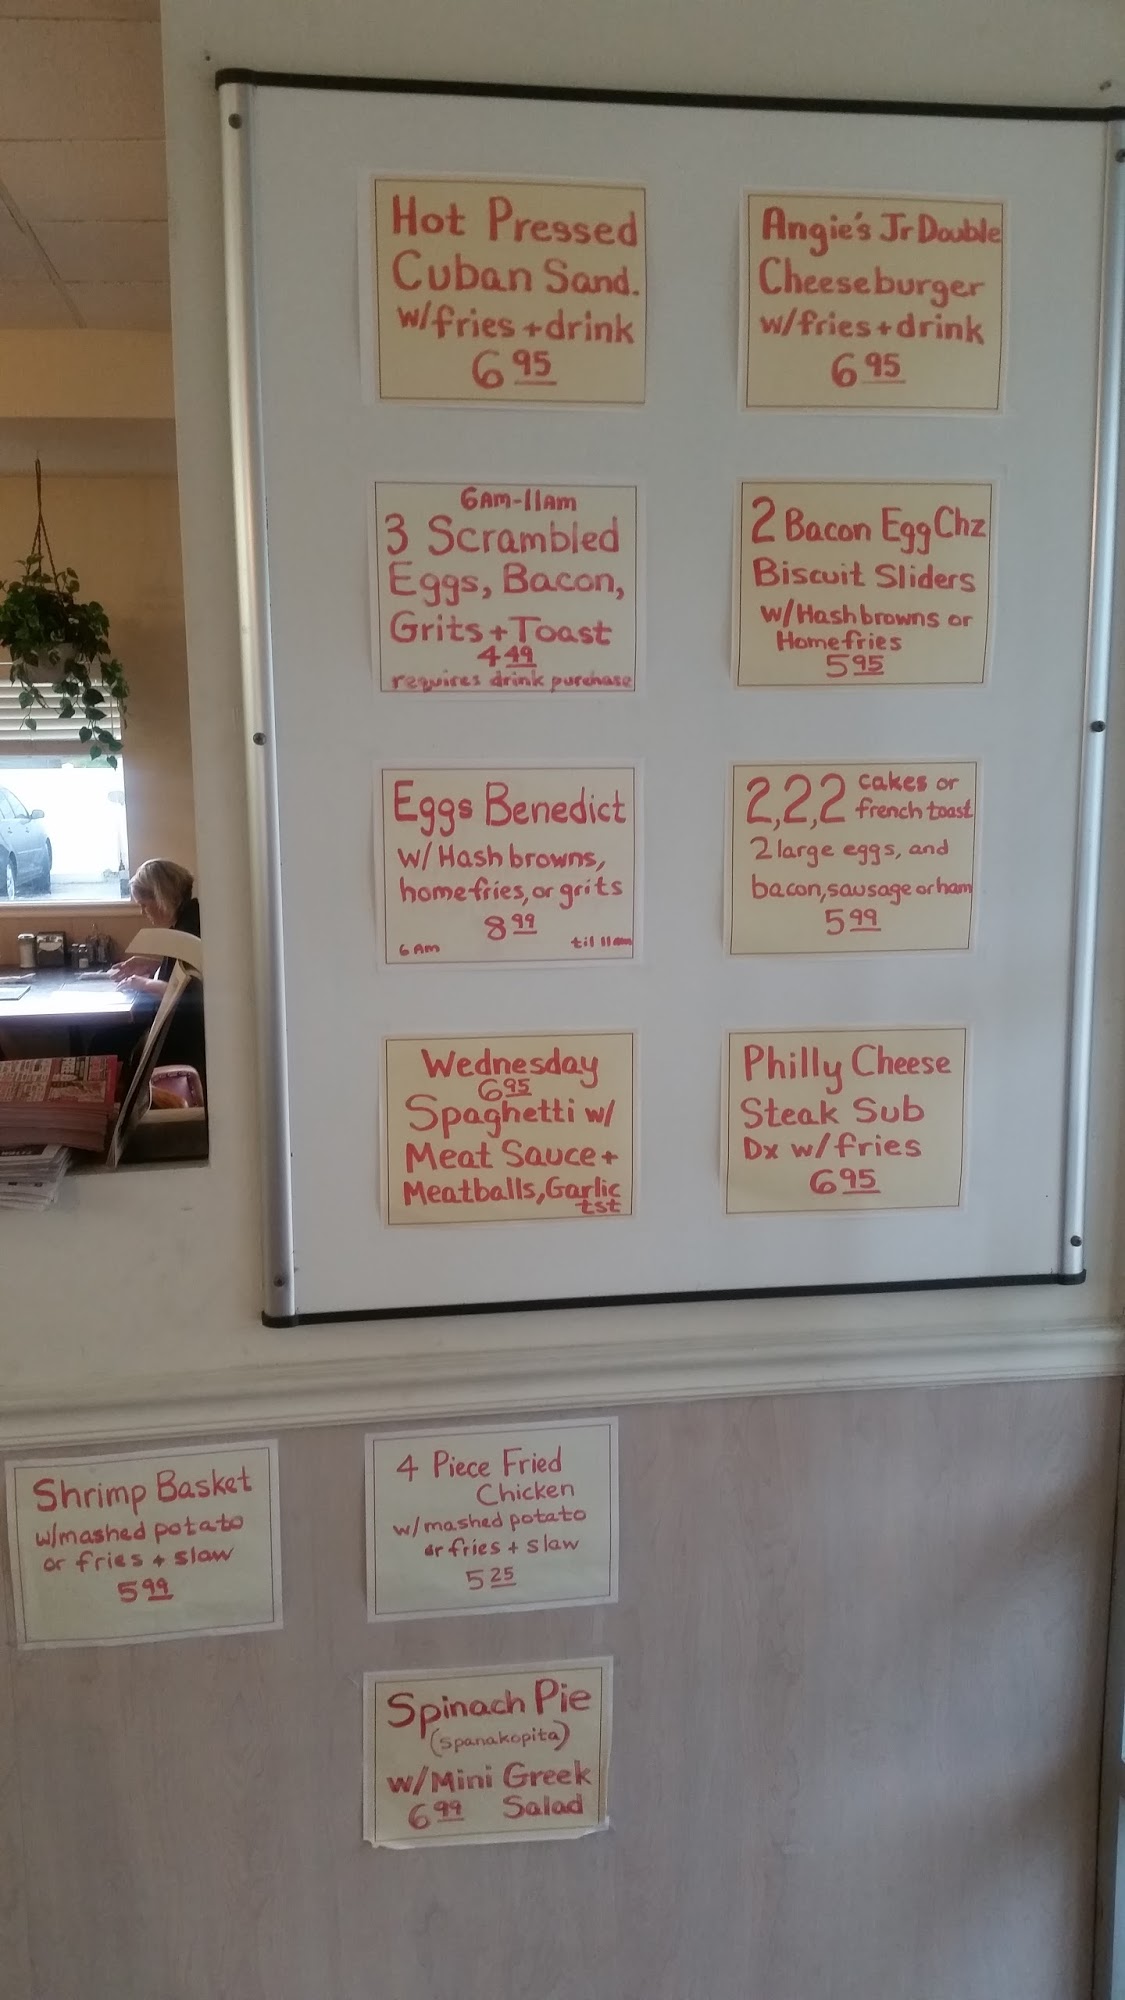 Hot Pressed
Cuban Sand.
w/fries + drink
6 95
Angie's Jr Double
Cheeseburger
w/fries + drink
6 95
6Am-11Am
3 Scrambled
Eggs, Bacon,
Grits + Toast
4 49
requires drink purchase
2 Bacon Egg Chz
Biscuit Sliders
w/Hashbrowns or
Homefries
5 95
Eggs Benedict
w/ Hashbrowns,
homefries, or grits
8 99
6 Am til 11am
2,2,2 cakes or
french toast
2 large eggs, and
bacon, sausage or ham
5 99
Wednesday
6 95
Spaghetti w/
Meat Sauce +
Meatballs, Garlic
tst
Philly Cheese
Steak Sub
Dx w/fries
6 95
Shrimp Basket
w/mashed potato
or fries + slaw
5 99
4 Piece Fried
Chicken
w/mashed potato
or fries + slaw
5 25
Spinach Pie
(Spanakopita)
w/Mini Greek
6 99 Salad